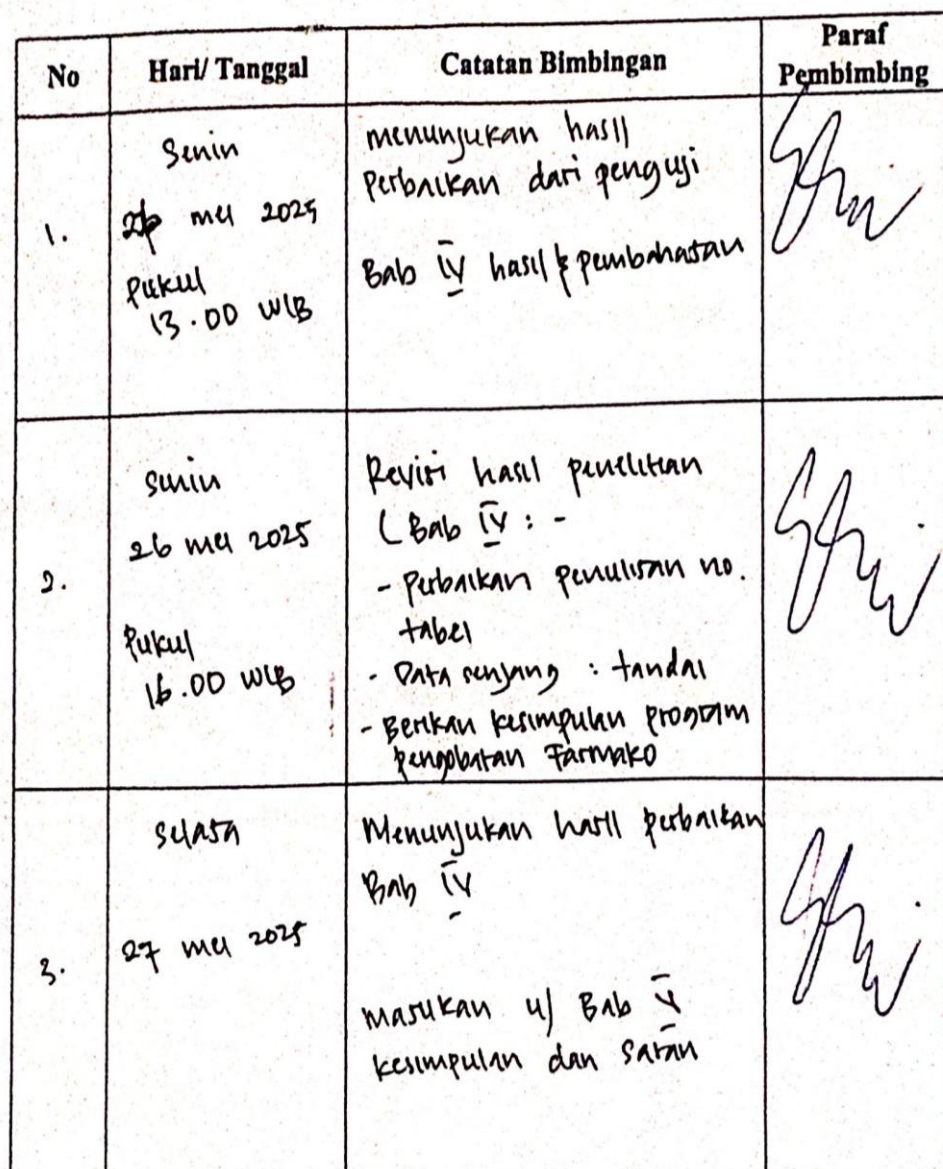 No
Hari/ Tanggal
Catatan Bimbingan
Paraf
Pembimbing
1.
Senin
26 mei 2025
Pukul
13.00 WIB
menunjukan hasil
Perbaikan dari penguji
Bab IV hasil & pembahasan
2.
Senin
26 mei 2025
Pukul
16.00 WIB
Revisi hasil penelitian
(Bab IV : -
- Perbaikan penulisan no.
tabel
- Data senjang : tandai
- Berikan kesimpulan program
pengobatan Farmako
3.
Selasa
27 mei 2025
Menunjukan hasil perbaikan
Bab IV
masukan u/ Bab V
kesimpulan dan saran